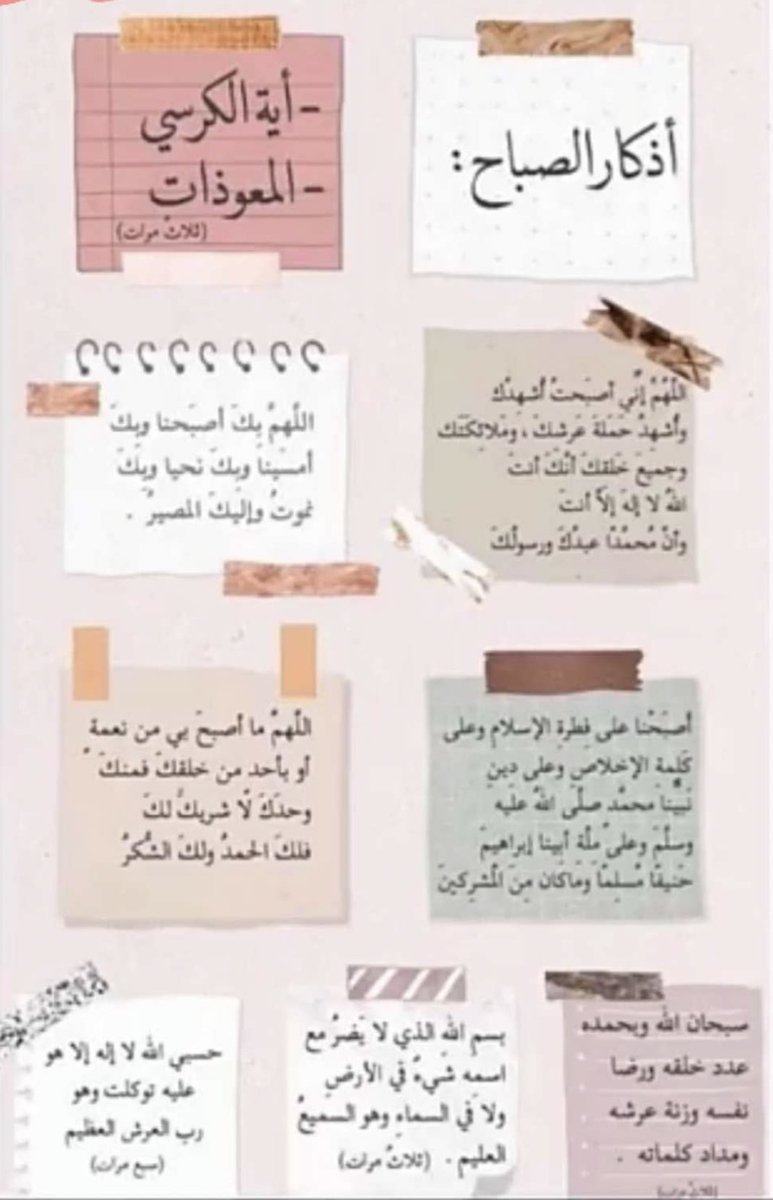 أذكار الصباح :
- أية الكرسي
- المعوذات
(ثلاث مرات)
اللّهُمَّ إنّي أصبَحتُ أُشهِدُك
وأُشهِدُ حَمَلَةَ عَرشكَ ، ومَلائِكَتَك
وجميعَ خَلقكَ أنّكَ أنتَ
اللهُ لا إلهَ إلّا أنتَ
وأنّ مُحمّدًا عبدُكَ ورسولُكَ
اللّهمّ بِكَ أصبَحنا وبِكَ
أمسَينا وبِكَ نحيا وبِكَ
نموتُ وإليكَ المصيرُ .
أصبَحْنا على فِطرةِ الإسلام وعلى
كَلِمة الإخلاصِ وعلى دينِ
نَبيّنا محمّد صلّى اللهُ عليه
وسلّمَ وعلى ملّة أبينا إبراهيمَ
حَنيفًا مُسلِمًا وَمَاكَان مِنَ المُشركينَ
اللّهمّ ما أصبحَ بي من نعمة
أو بأحد من خلقكَ فمنكَ
وحدَكَ لا شريكَ لكَ
فلكَ الحمدُ ولكَ الشُكرُ
سبحان الله وبحمده
عدد خلقه ورضا
نفسه وزنة عرشه
ومداد كلماته .
(ثلاث مرات)
بسم الله الذي لا يَضرُّ مع
اسمه شَيءٌ في الأرضِ
ولا في السماءِ وهو السميعُ
العليم . (ثلاثُ مرات)
حسبي الله لا إله إلا هو
عليه توكلت وهو
رب العرش العظيم
(سبع مرات)